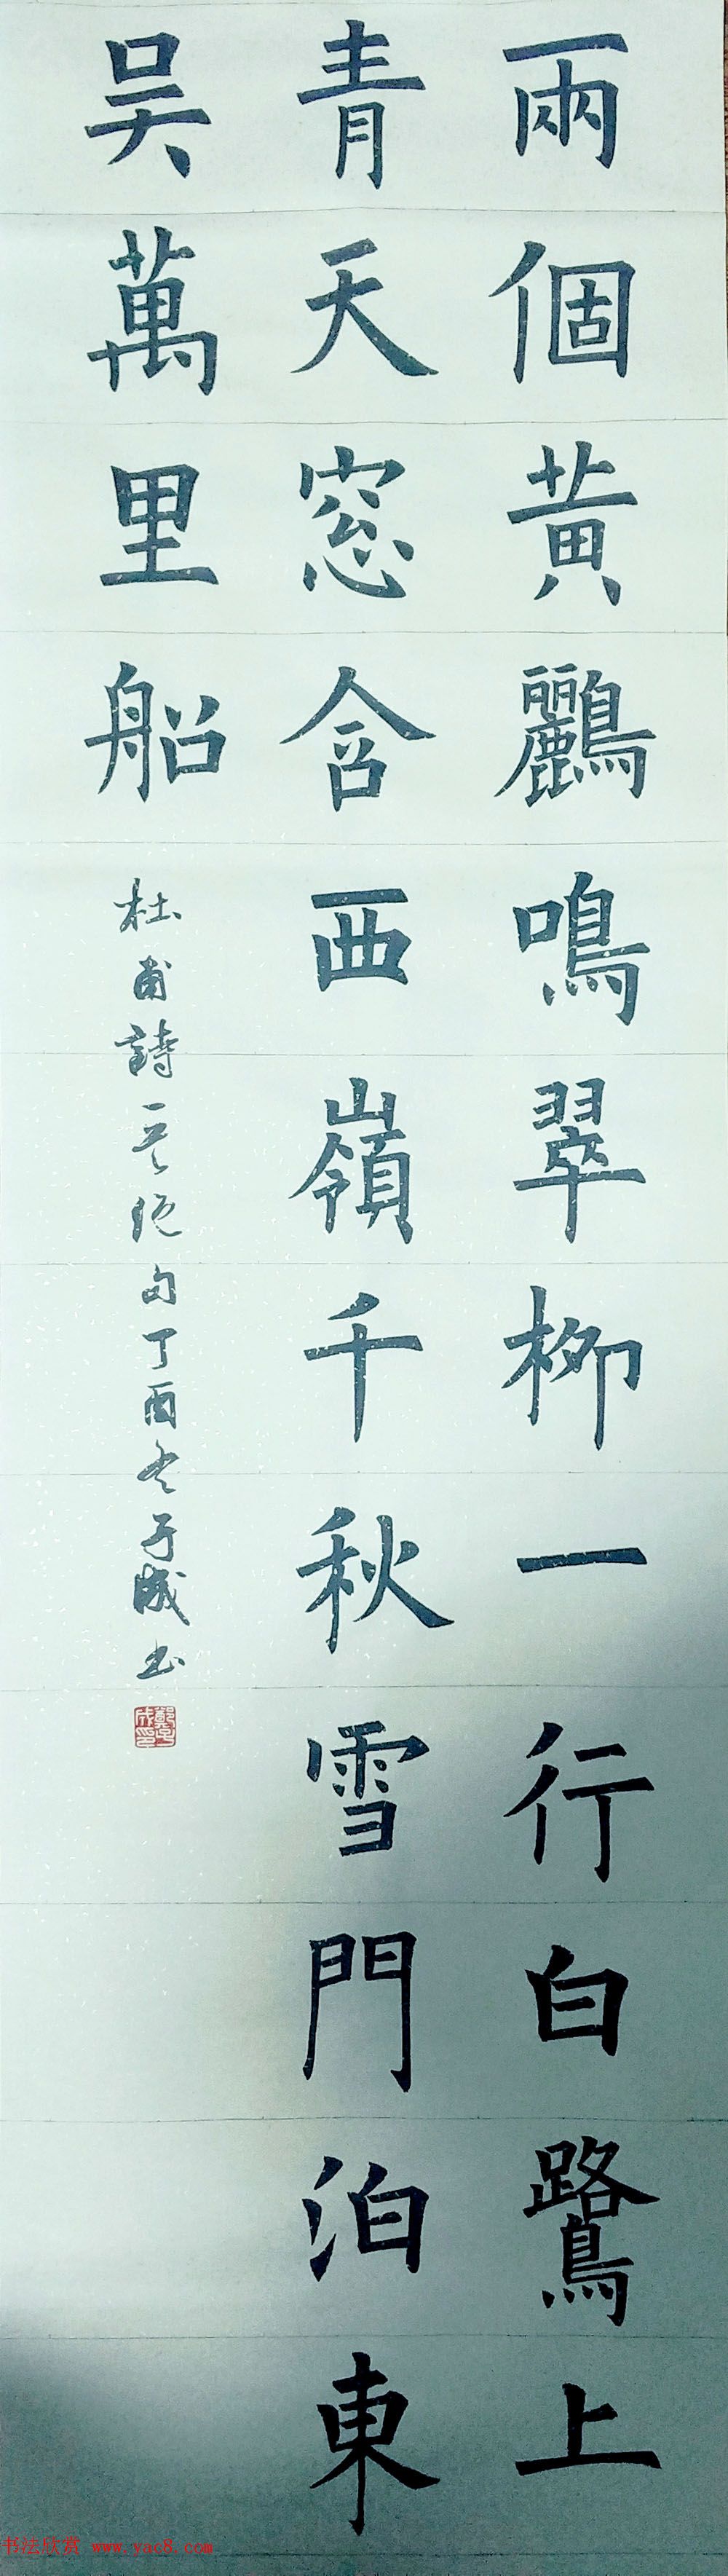 兩個黃鸝鳴翠柳一行白鷺上
青天窓含西嶺千秋雪門泊東
吴萬里船
杜甫詩一首絕句丁酉冬子成書
书法欣赏 www.yac8.com